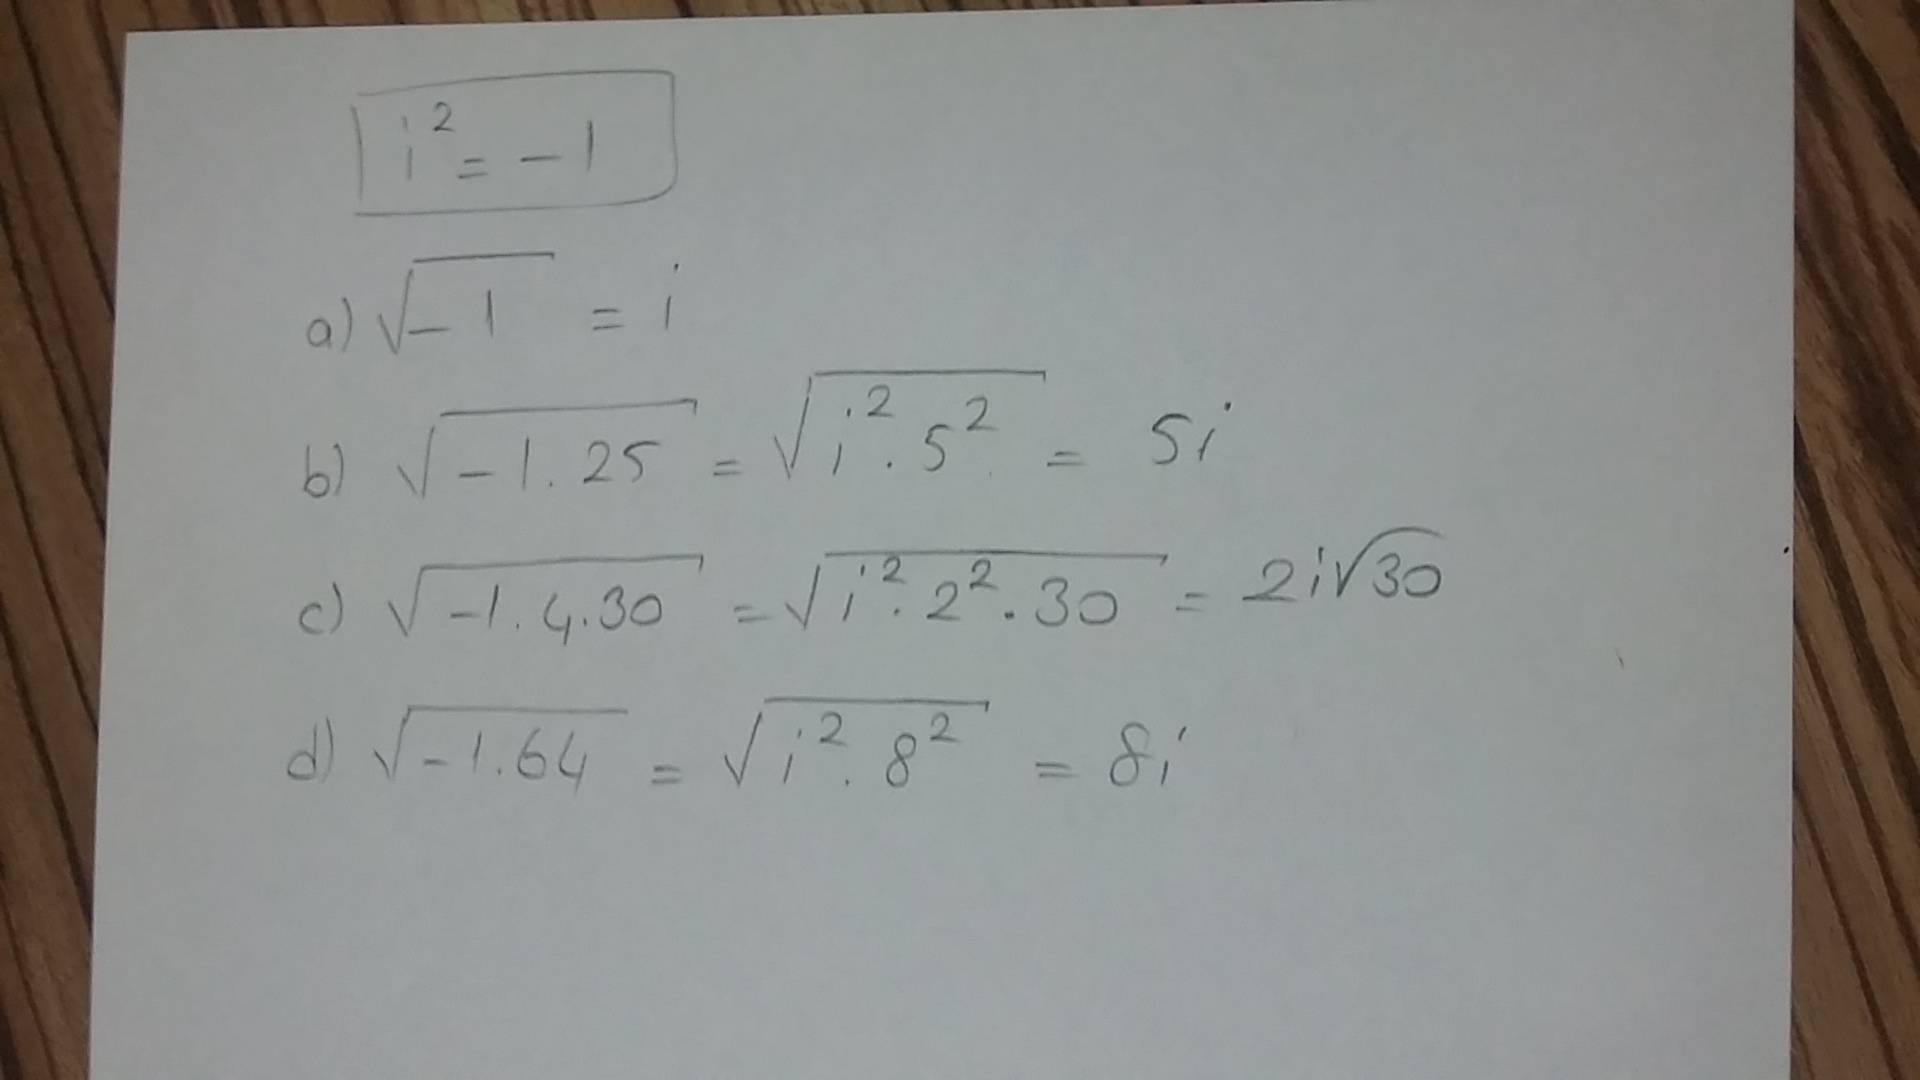 i² = -1
a) √-1 = i
b) √-1.25 = √i².5² = 5i
c) √-1.4.30 = √i².2².30 = 2i√30
d) √-1.64 = √i².8² = 8i